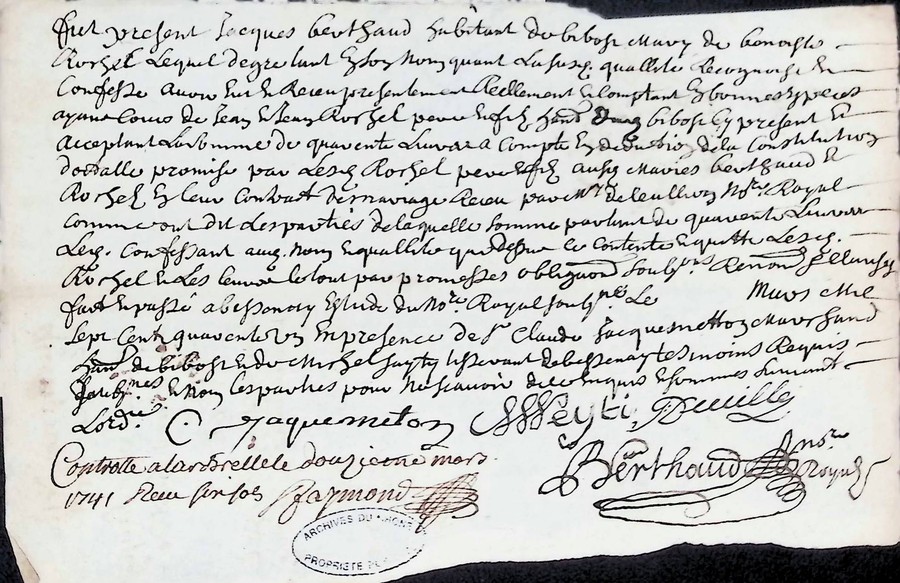 fut present Jacques berthaud habitant de bibost mary de benoiste
Rochel Lequel de gre tant En son Nom quant La susd. quallite Recognoist Et
Confesse avoir Eut et Receu presentement Reellement Et Comptant En bonnes Especes
ayant Cours de Jean Et Jean Rochel pere et fils hand. bibost Cy present Et
acceptant La somme de quarente Livres a Compte En deduction de la Constitution
dotalle promise par Lesd. Rochel pere et fils ausd. Maries berthaud Et
Rochel En leur Contract de mariage Receu par Me Not.re Royal
comme ont dit Les parties de laquelle somme partant de quarente Livres
Led. Confessant aud. Nom Et quallite que dessus se Contente Et quitte Lesd.
Rochel Et Les Le tout par promesses obligaon soubz.ns Renon.ns Clauses
fait Et passé a bessenay Estude du No.re Royal soubz.ne Le Mars Mil
Sept Cents quarente Un En presence de Sr Claude Jacquemetton Marchand
han.t de bibost Et de Michel tisserant de bessenay tesmoins Requis
soubz.nes Et Non Les parties pour Ne scavoir de ce Enquis Et sommes suivant
Lord.ce C. Jaquemeton
Berthaud no.re Royal
Controlle a larbrelle le douzieme mars
1741 Receu six sols Raymond
ARCHIVES DU RHONE
PROPRIETE